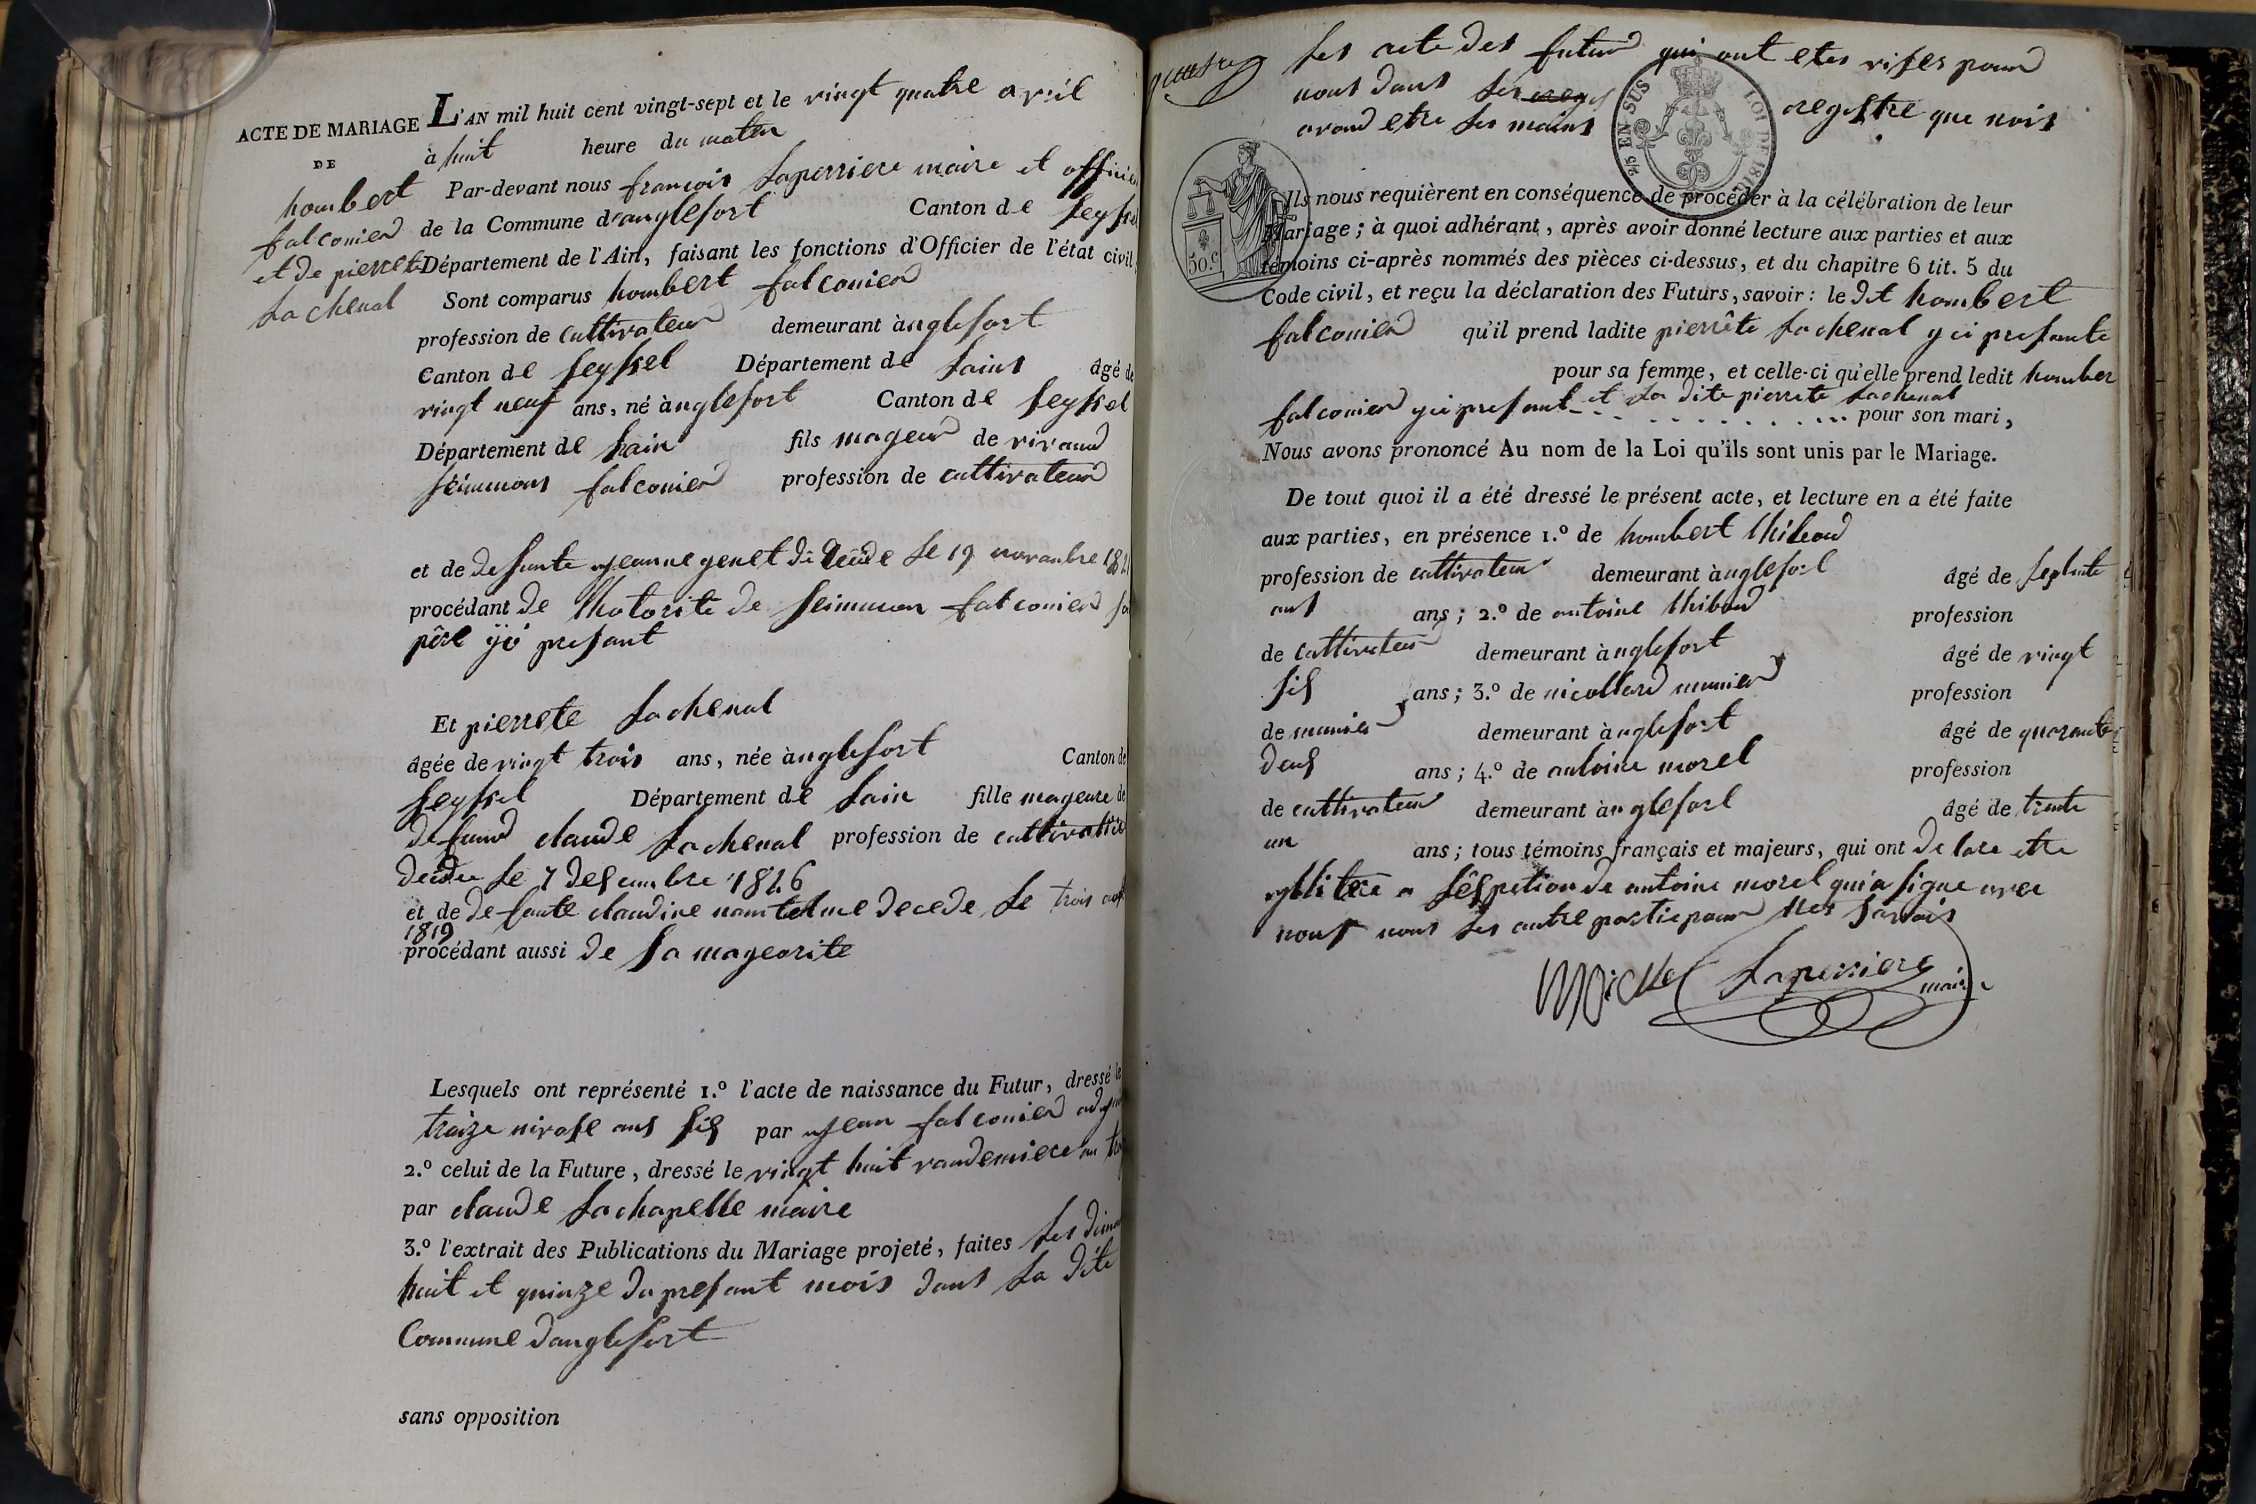 ACTE DE MARIAGE
DE
hombert
falconier
et de pierrete
Lachenal
L'AN mil huit cent vingt-sept et le vingt quatre avril
à huit heure du matin
Par-devant nous françois Laperriere maire et officier
de la Commune danglefort Canton de Seyssel
Département de l'Ain, faisant les fonctions d'Officier de l'état civil,
Sont comparus hombert falconier
profession de cultivateur demeurant à nglefort
Canton de Seyssel Département de Lains âgé de
vingt neuf ans, né à nglefort Canton de Seyssel
Département de Lain fils mageur de vivand
Seimmons falconier profession de cultivateur
et de defunte jeanne genet décédé Le 19 novanbre
procédant de Lhotorite de Seimmon falconier
père presant
Et pierrete Lachenal
âgée de vingt trois ans, née à nglefort Canton de
Seyssel Département de Lain fille mageure de
defund claude Lachenal profession de
Le 7 desambre 1826
et de defunte claudine decede Le trois
1819
procédant aussi de Sa mageorite
Lesquels ont représenté 1.º l'acte de naissance du Futur, dressé le
traize nivose ans six par jean falconier
2.º celui de la Future, dressé le vingt huit vandemiere an
par claude Lachapelle maire
3.º l'extrait des Publications du Mariage projeté, faites Les
huit et quinze du presant mois dans La dite
Commune danglefort
sans opposition
Les acte des futur qui ont etes vises pour
nous dans Les regis registre que nois
avond etre Les mains
2/5 EN SUS LOI DE
50.c
Ils nous requièrent en conséquence de procéder à la célébration de leur
Mariage ; à quoi adhérant, après avoir donné lecture aux parties et aux
témoins ci-après nommés des pièces ci-dessus, et du chapitre 6 tit. 5 du
Code civil, et reçu la déclaration des Futurs, savoir : le dit hombert
falconier qu'il prend ladite pierrête Lachenal y ci presante
pour sa femme, et celle-ci qu'elle prend ledit homber
falconier y ci presant et La dite pierrete Lachenal pour son mari,
Nous avons prononcé Au nom de la Loi qu'ils sont unis par le Mariage.
De tout quoi il a été dressé le présent acte, et lecture en a été faite
aux parties, en présence 1.º de hombert thiboud
profession de cultivateur demeurant à nglefort âgé de
ans ans ; 2.º de antoine thiboud profession
de cultivateur demeurant à nglefort âgé de vingt
six ans ; 3.º de nicollard munier profession
de munier demeurant à nglefort âgé de quarante
deus ans ; 4.º de antoine morel profession
de cultivateur demeurant à nglefort âgé de trente
un ans ; tous témoins français et majeurs, qui ont de lare etre
a de antoine morel qui a signe avec
nous nous Les autre partie pour
Laperriere
maire